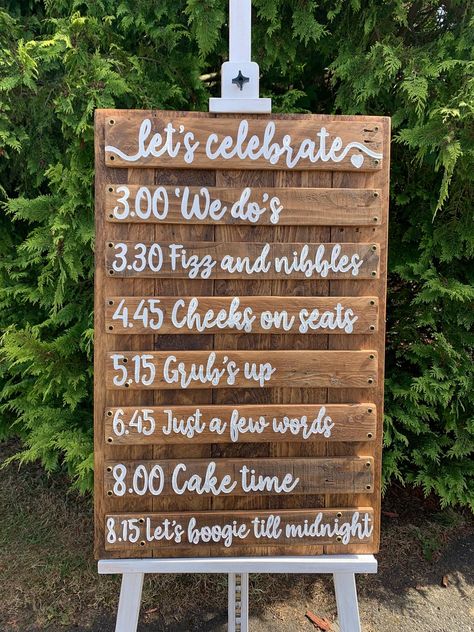 let's celebrate
3.00 'We do's
3.30 Fizz and nibbles
4.45 Cheeks on seats
5.15 Grub's up
6.45 Just a few words
8.00 Cake time
8.15 Let's boogie till midnight